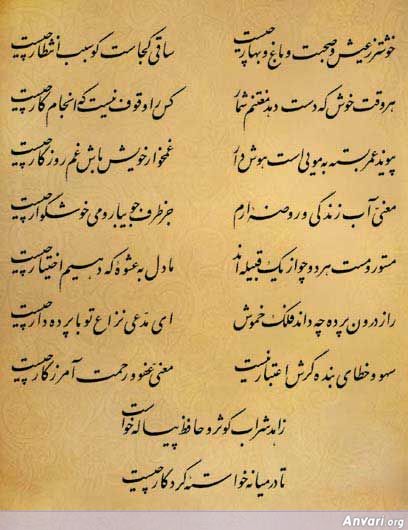 خوشتر ز عیش و صحبت و باغ و بهار چیست ساقی کجاست گو سبب انتظار چیست
هر وقت خوش که دست دهد مغتنم شمار کس را وقوف نیست که انجام کار چیست
پیوند عمر بسته به مویی است هوش دار غمخوار خویش باش غم روزگار چیست
معنی آب زندگی و روضه ارم جز طرف جویبار و می خوشگوار چیست
مستور و مست هر دو چو از یک قبیله اند ما دل به عشوه که دهیم اختیار چیست
راز درون پرده چه داند فلک خموش ای مدعی نزاع تو با پرده دار چیست
سهو و خطای بنده گرش اعتبار نیست معنی عفو و رحمت آمرزگار چیست
زاهد شراب کوثر و حافظ پیاله خواست
تا در میانه خواسته کردگار چیست
Anvari.org